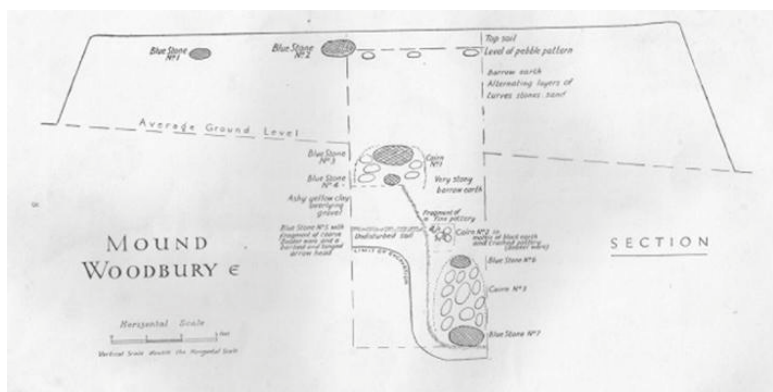 Blue Stone
Nº1
Blue Stone
Nº2
Top soil
Level of pebble pattern
Barrow earth
Alternating layers of
stones sand
Average Ground Level
Blue Stone
Nº3
Cairn
Nº1
Blue Stone
Nº4
Very stony
barrow earth
Ashy yellow clay
overlying
gravel
Fragment of
Fine pottery
Blue Stone Nº5 with
fragment of coarse
ware and a
barbed and tanged
arrow head
Undisturbed soil
Cairn Nº2 in
matrix of black earth
and crushed pottery
LIMIT OF EXCAVATION
Blue Stone Nº6
Cairn Nº3
Blue Stone Nº7
MOUND
WOODBURY E
SECTION
Horizontal Scale
Feet
Vertical Scale the Horizontal Scale